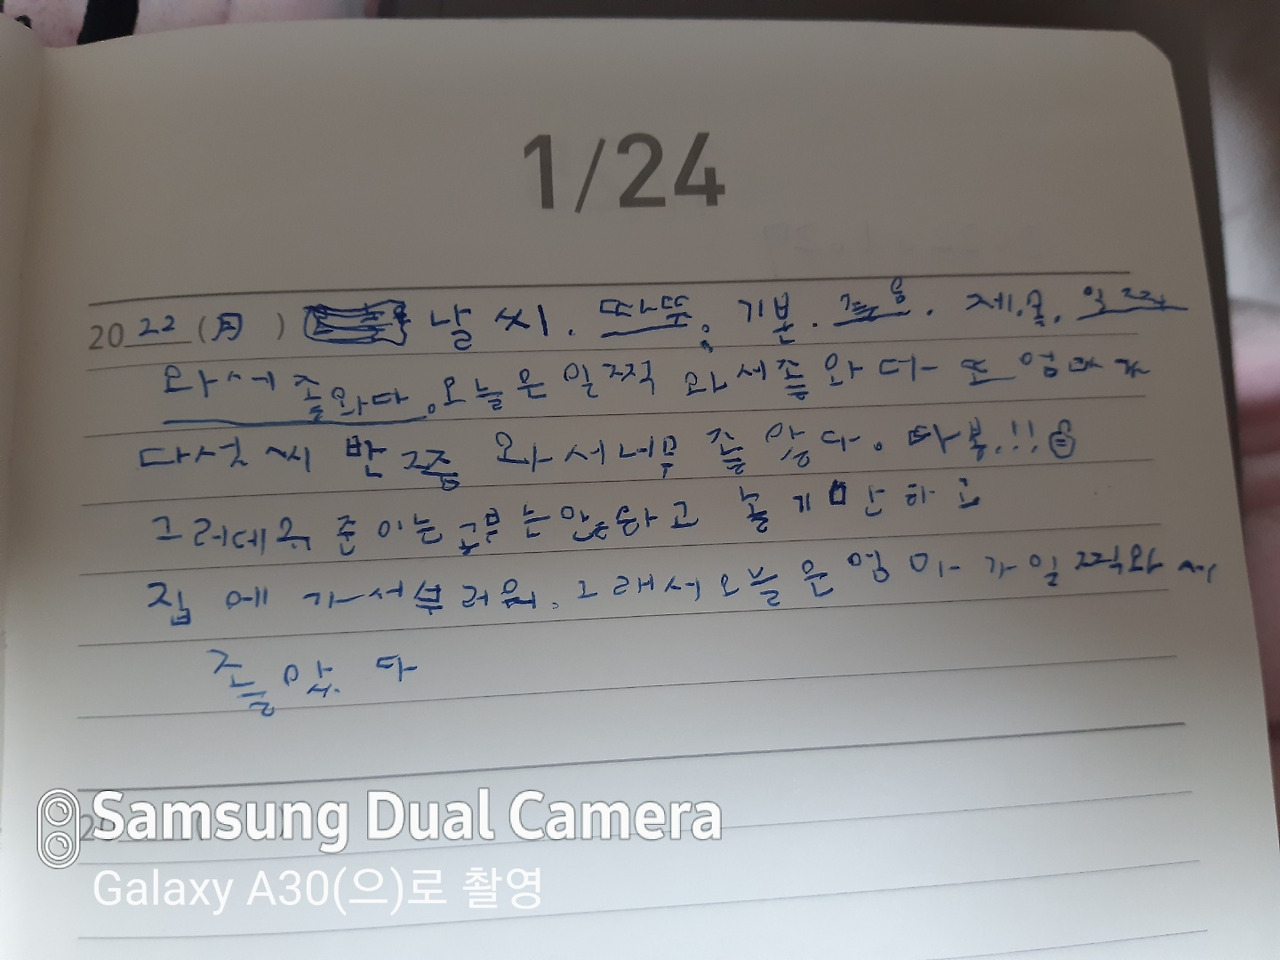 1/24
2022 (月) 날씨. 따뜻. 기분. 좋음. 제목. 일찍
와서 좋았다. 오늘은 일찍 와서 좋와다 또 엄마가
다섯씨 반쯤 와서 너무 좋았다. 따봉.!!
그러데 준이는 공부는 안하고 놀기만 하고
집에 가서 부러워. 그래서 오늘은 엄마가 일찍와서
좋았다
20
Samsung Dual Camera
Galaxy A30(으)로 촬영